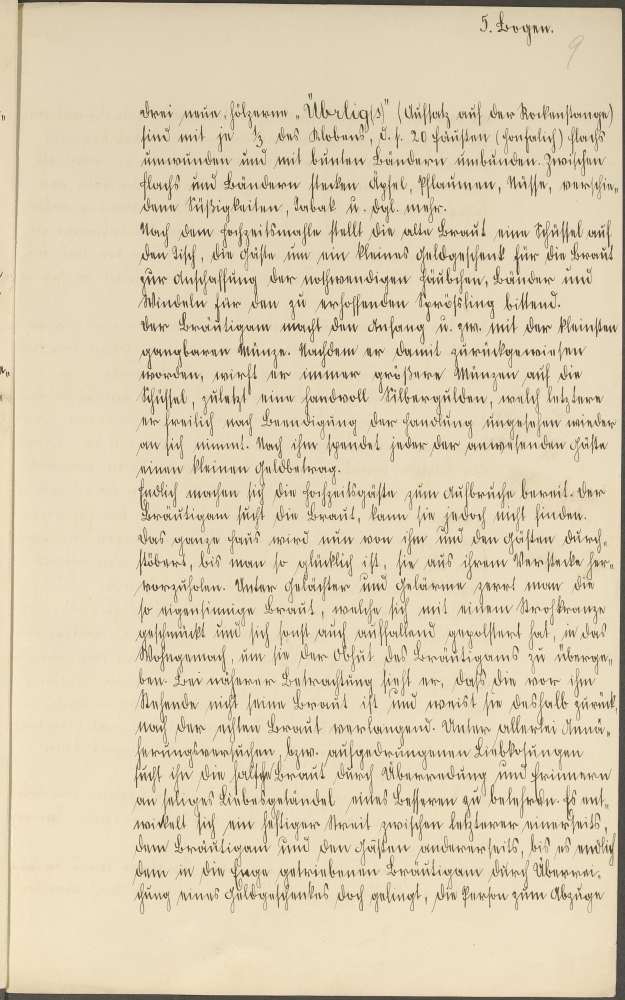 5. Bogen.
9
drei neue, hölzerne „Überlig(s)" (Aufsatz auf der Rockenstange)
sind mit je ⅓ des Klobens, d. h. 20 Fäusten (honfalich) Flachs
umwunden und mit bunten Bändern umbunden. Zwischen
Flachs und Bändern stecken Äpfel, Pflaumen, Nüsse, verschie-
dene Süßigkeiten, Tabak u. dgl. mehr.
Nach dem Hochzeitsmahle stellt die alte Braut eine Schüssel auf
den Tisch, die Gäste um ein kleines Geldgeschenk für die Braut
zur Anschaffung der nothwendigen Häubchen, Bänder und
Windeln für den zu erhoffenden Sprößling bittend.
Der Bräutigam macht den Anfang u. zw. mit der kleinsten
gangbaren Münze. Nachdem er damit zurückgewiesen
worden, wirft er immer größere Münzen auf die
Schüssel, zuletzt eine Handvoll Silbergulden, welch letztere
er freilich nach Beendigung der Handlung ungesehen wieder
an sich nimmt. Nach ihm spendet jeder der anwesenden Gäste
einen kleinen Geldbetrag.
Endlich machen sich die Hochzeitsgäste zum Aufbruche bereit. Der
Bräutigam sucht die Braut, kann sie jedoch nicht finden.
Das ganze Haus wird nun von ihm und den Gästen durch-
stöbert, bis man so glücklich ist, sie aus ihrem Verstecke her-
vorzuholen. Unter Gelächter und Gelärme zerrt man die
so eigensinnige Braut, welche sich mit einem Strohkranze
geschmückt und sich sonst auch auffallend gepolstert hat, in das
Wohngemach, um sie der Obhut des Bräutigams zu überge-
ben. Bei näherer Betrachtung sieht er, daß die vor ihm
Stehende nicht seine Braut ist und weist sie deshalb zurück,
nach der echten Braut verlangend. Unter allerlei Annä-
herungsversuchen, bzw. aufgedrungenen Liebkosungen
sucht ihn die falsche Braut durch Überredung und Erinnern
an seliges Liebesgetändel eines Besseren zu belehren. Es ent-
wickelt sich ein heftiger Streit zwischen letzterer einerseits,
dem Bräutigam und den Gästen andererseits, bis es endlich
dem in die Enge getriebenen Bräutigam durch Überrei-
chung eines Geldgeschenkes doch gelingt, die Person zum Abzuge